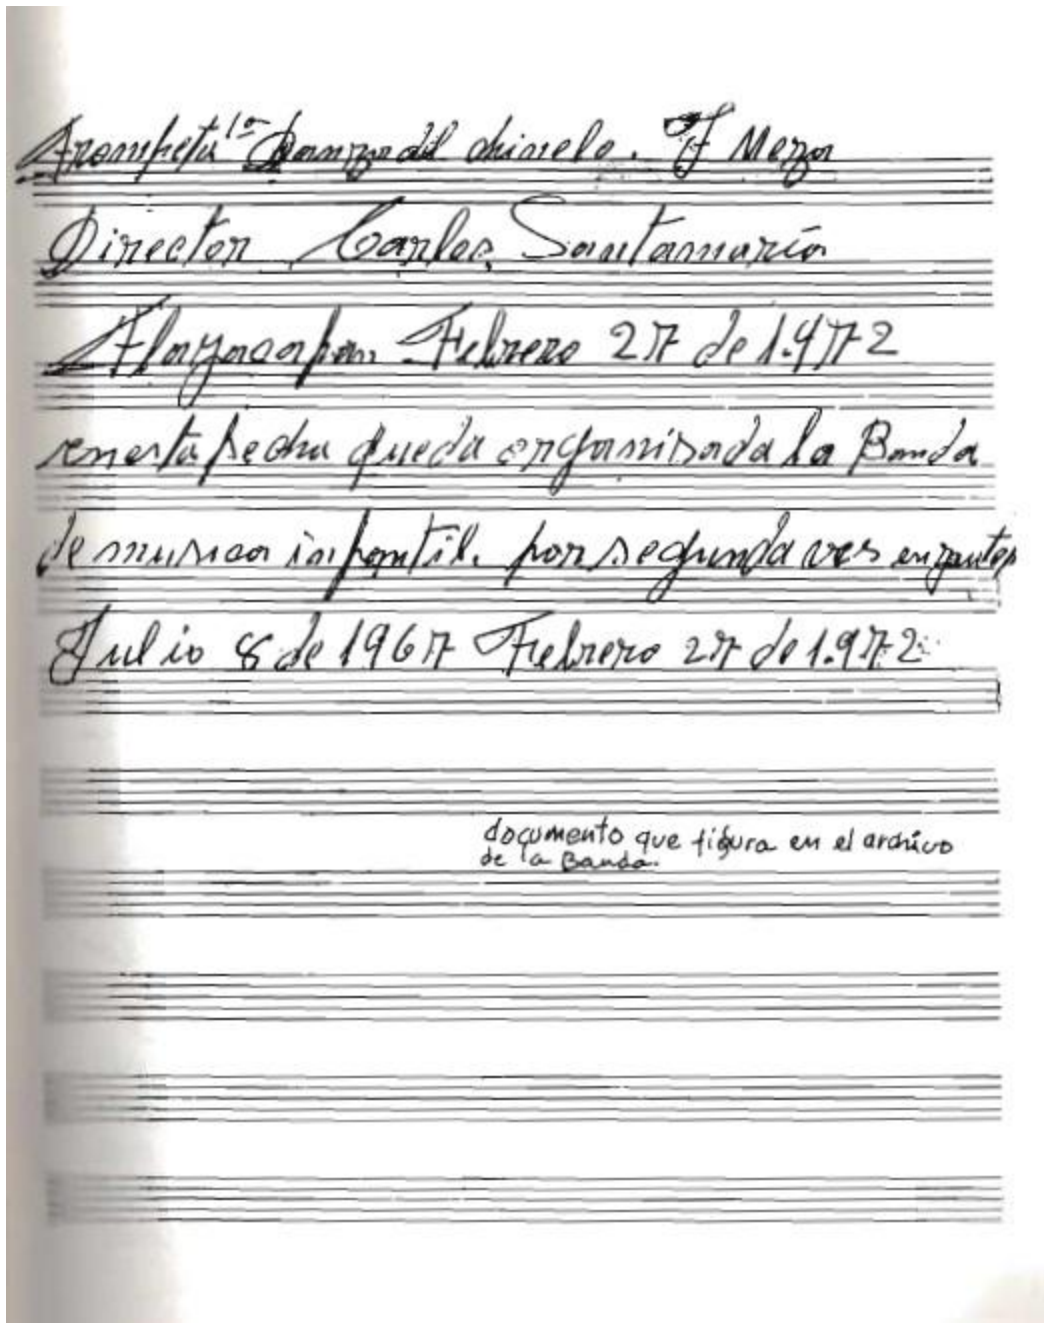 Trompeta 1a Danza del chinelo. J Meza
Director Carlos Santamaría
Tlayacapan Febrero 27 de 1.972
en esta fecha queda organisada la Banda
de musica infantil. por segunda ves
Julio 8 de 1967 Febrero 27 de 1.972
documento que figura en el archivo
de la Banda.